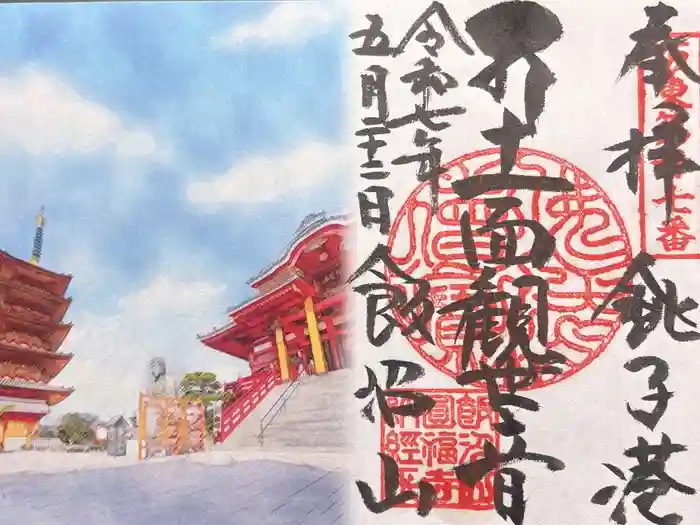 坂東
七番
奉拝 銚子港
十一面観世音
令和七年
五月二十二日 飯沼山
飯沼山
圓福寺
納経